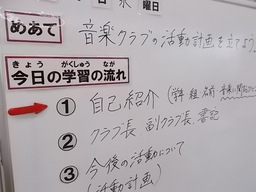 水 曜日
めあて 音楽クラブの活動計画を立てよう。
きょう がくしゅう なが
今日の学習の流れ
① 自己紹介 (学年 組 名前
② クラブ長 副クラブ長 書記
③ 今後の活動について
(活動計画)